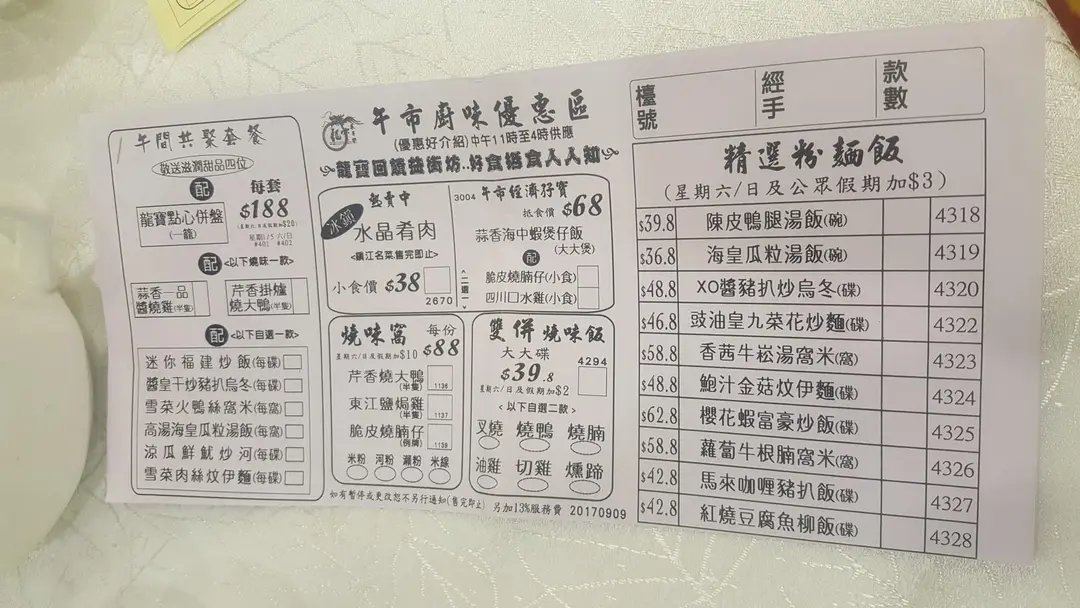 午間共聚套餐
敬送滋潤甜品四位
配
每套
龍寶點心併盤
(一籠)
$188
(星期六/日及假期加$20)
星期1/5 六/日
#401 #402
配 <以下燒味一款>
蒜香一品
醬燒雞(半隻)
芹香掛爐
燒大鴨(半隻)
配 <以下自選一款>
迷你福建炒飯(每碟)
醬皇干炒豬扒烏冬(每碟)
雪菜火鴨絲窩米(每窩)
高湯海皇瓜粒湯飯(每窩)
涼瓜鮮魷炒河(每碟)
雪菜肉絲炆伊麵(每碟)
午市廚味優惠區
(優惠好介紹)中午11時至4時供應
龍寶回饋益街坊..好食搭食人人知
熱賣中
冰鎮
水晶肴肉
<鎮江名菜售完即止>
小食價 $38
2670
3004 午市經濟孖寶
抵食價 $68
蒜香海中蝦煲仔飯
(大大煲)
配
<二選一>
脆皮燒腩仔(小食)
四川口水雞(小食)
燒味窩
每份
星期六/日及假期加$10
$88
芹香燒大鴨
(半隻)
1136
東江鹽焗雞
(半隻)
1137
脆皮燒腩仔
(例牌)
1139
米粉 河粉 瀨粉 米線
雙併燒味飯
大大碟
4294
$39.8
星期六/日及假期加$2
<以下自選二款>
叉燒 燒鴨 燒腩
油雞 切雞 燻蹄
如有暫停或更改恕不另行通知(售完即止) 另加13%服務費 20170909
檯號
經手
款數
精選粉麵飯
(星期六/日及公眾假期加$3)
$39.8 陳皮鴨腿湯飯(碗) 4318
$36.8 海皇瓜粒湯飯(碗) 4319
$48.8 XO醬豬扒炒烏冬(碟) 4320
$46.8 豉油皇九菜花炒麵(碟) 4322
$58.8 香茜牛崧湯窩米(窩) 4323
$48.8 鮑汁金菇炆伊麵(碟) 4324
$62.8 櫻花蝦富豪炒飯(碟) 4325
$58.8 蘿蔔牛根腩窩米(窩) 4326
$42.8 馬來咖喱豬扒飯(碟) 4327
$42.8 紅燒豆腐魚柳飯(碟) 4328